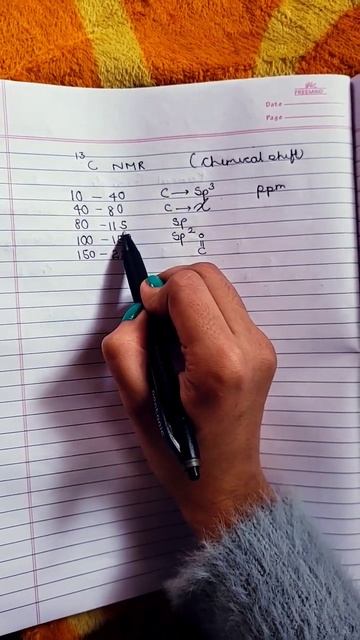 FREEMIND
Date
Page
13C NMR (Chemical shift)
10 - 40 C → Sp3 ppm
40 - 80 C → X
80 - 115 Sp
100 - Sp2 O
150 - C